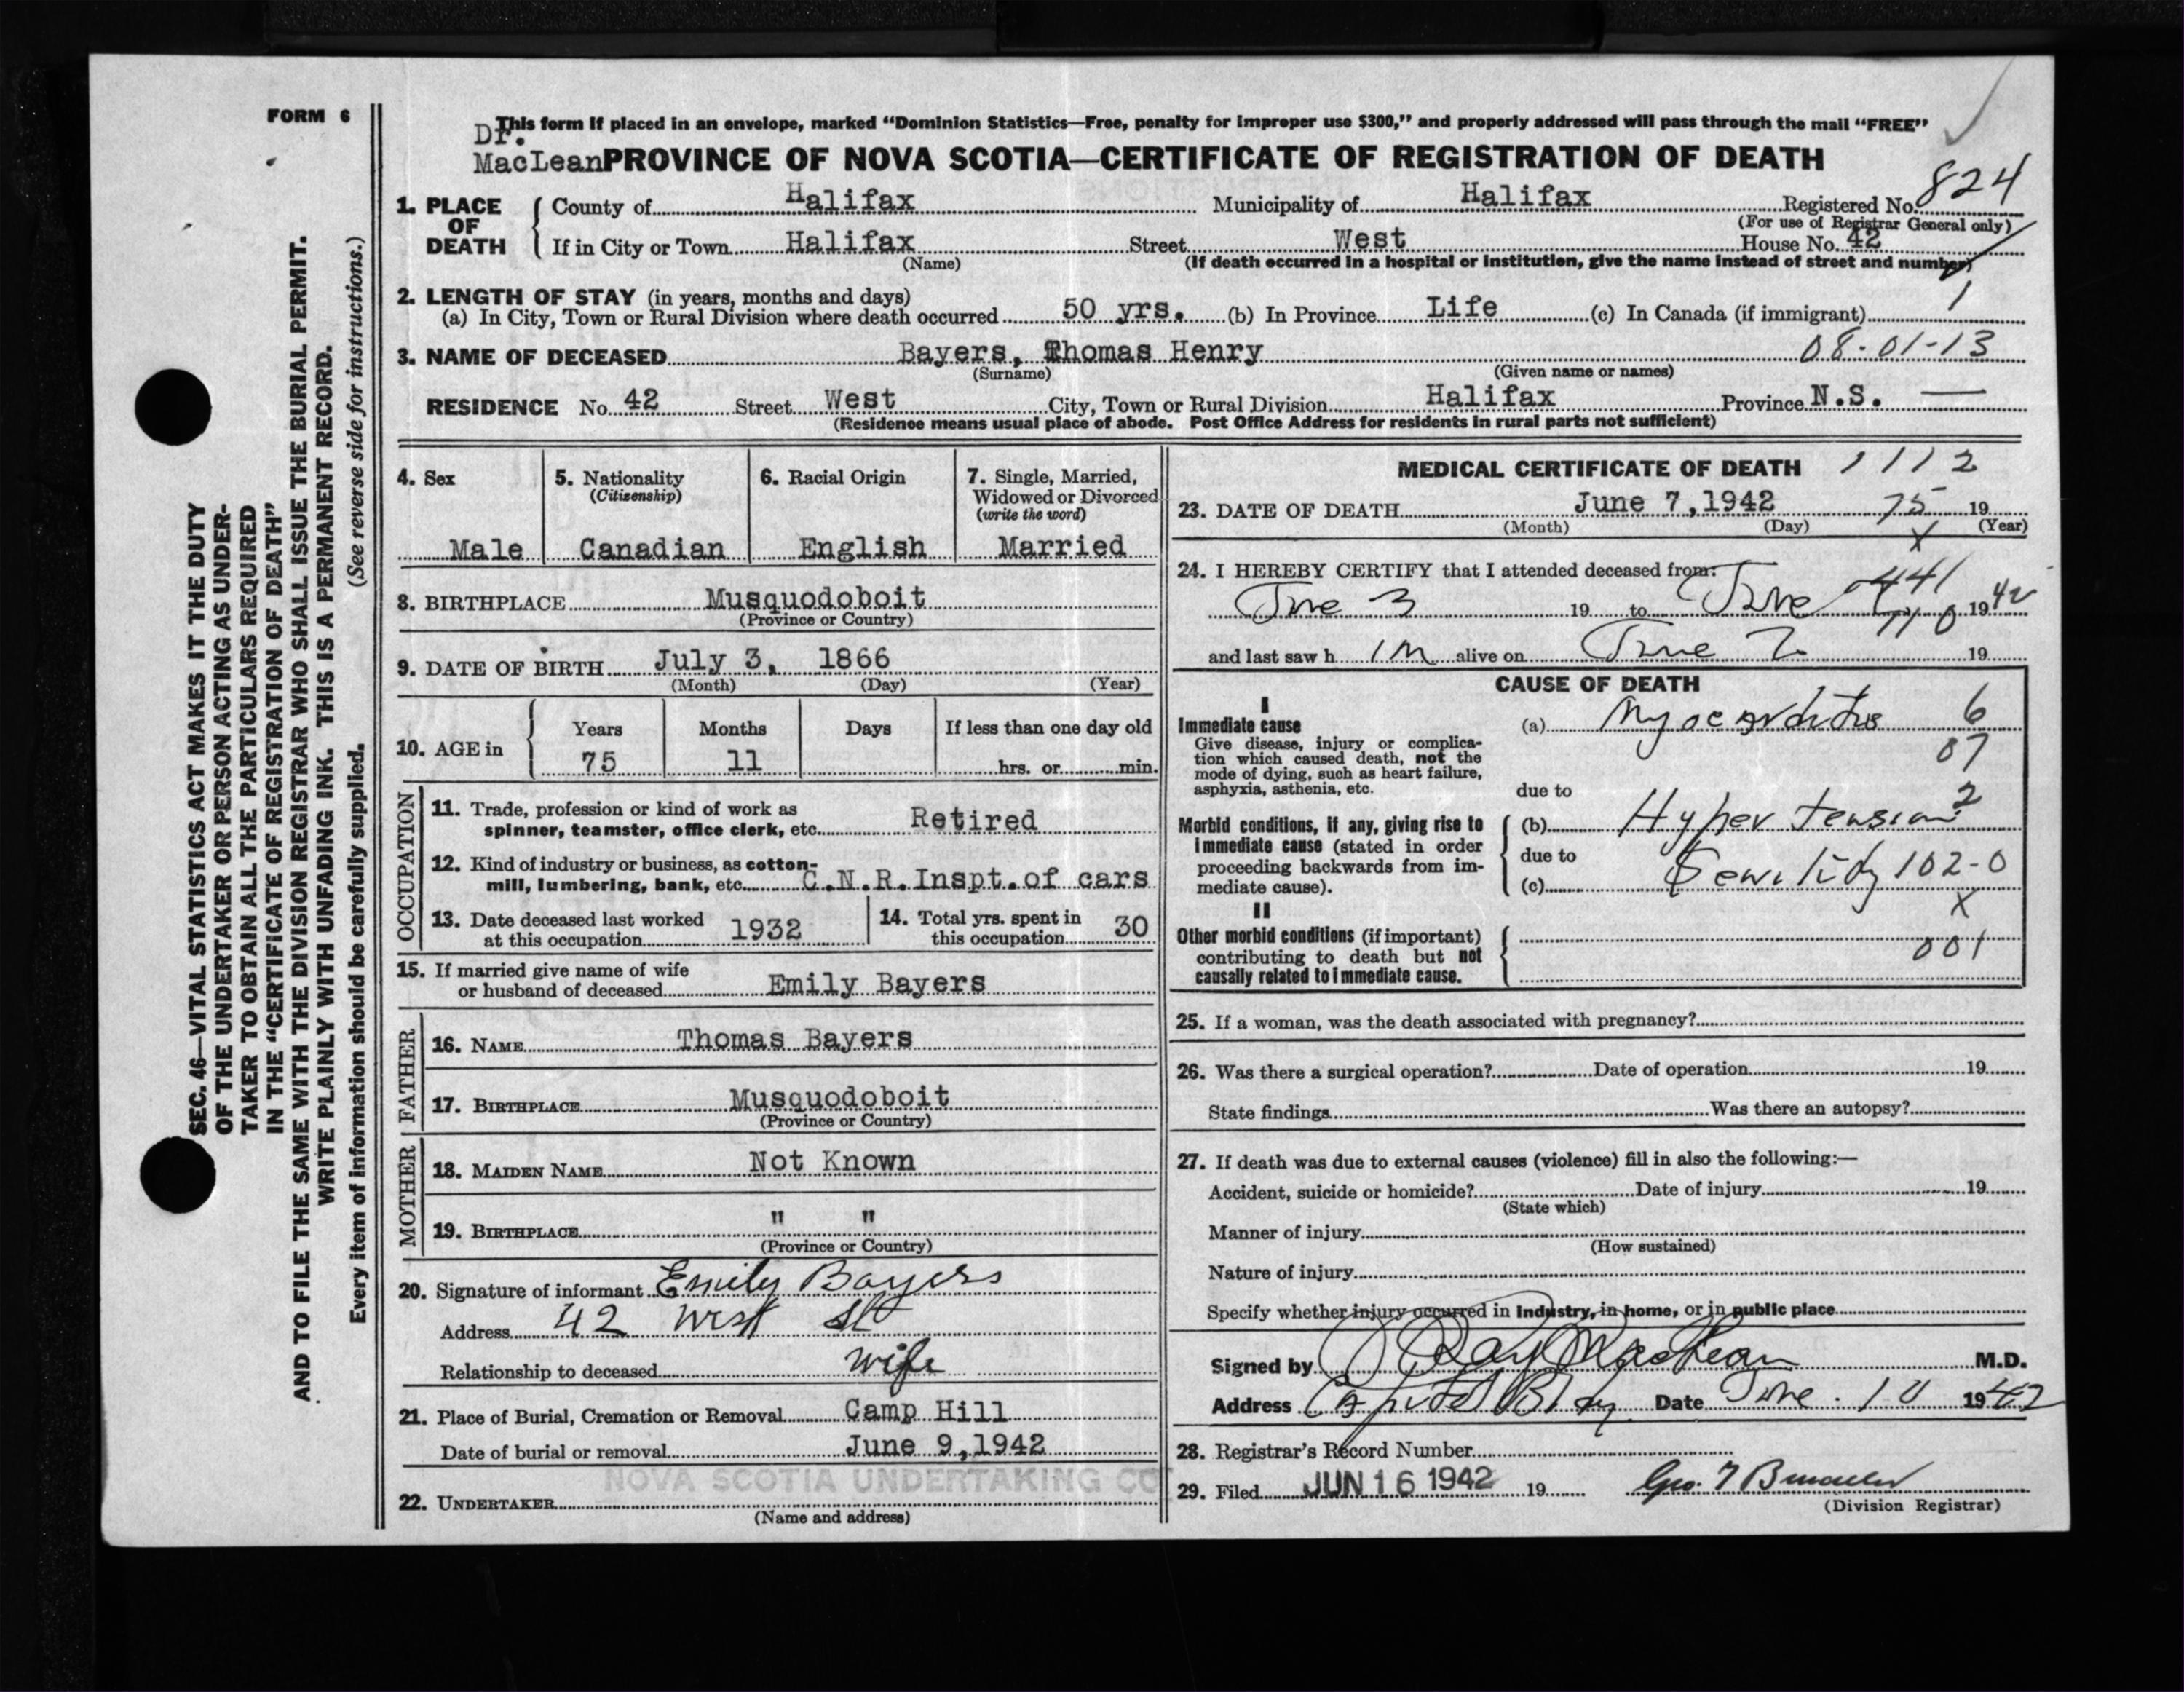 FORM 6
SEC. 46—VITAL STATISTICS ACT MAKES IT THE DUTY
OF THE UNDERTAKER OR PERSON ACTING AS UNDER-
TAKER TO OBTAIN ALL THE PARTICULARS REQUIRED
IN THE "CERTIFICATE OF REGISTRATION OF DEATH"
AND TO FILE THE SAME WITH THE DIVISION REGISTRAR WHO SHALL ISSUE THE BURIAL PERMIT.
WRITE PLAINLY WITH UNFADING INK. THIS IS A PERMANENT RECORD.
Every item of information should be carefully supplied. (See reverse side for instructions.)
This form if placed in an envelope, marked "Dominion Statistics—Free, penalty for improper use $300," and properly addressed will pass through the mail "FREE"
Dr.
MacLean PROVINCE OF NOVA SCOTIA—CERTIFICATE OF REGISTRATION OF DEATH
1. PLACE OF DEATH County of Halifax Municipality of Halifax Registered No. 824
(For use of Registrar General only)
If in City or Town Halifax Street West House No. 42
(Name) (If death occurred in a hospital or institution, give the name instead of street and number)
2. LENGTH OF STAY (in years, months and days)
(a) In City, Town or Rural Division where death occurred 50 yrs. (b) In Province Life (c) In Canada (if immigrant) 1
3. NAME OF DECEASED Bayers, Thomas Henry 08-01-13
(Surname) (Given name or names)
RESIDENCE No. 42 Street West City, Town or Rural Division Halifax Province N.S. —
(Residence means usual place of abode. Post Office Address for residents in rural parts not sufficient)
4. Sex
Male
5. Nationality
(Citizenship)
Canadian
6. Racial Origin
English
7. Single, Married,
Widowed or Divorced
(write the word)
Married
8. BIRTHPLACE Musquodoboit
(Province or Country)
9. DATE OF BIRTH July 3, 1866
(Month) (Day) (Year)
10. AGE in Years Months Days If less than one day old
75 11 hrs. or min.
OCCUPATION
11. Trade, profession or kind of work as
spinner, teamster, office clerk, etc. Retired
12. Kind of industry or business, as cotton-
mill, lumbering, bank, etc. C.N.R. Inspt. of cars
13. Date deceased last worked
at this occupation 1932
14. Total yrs. spent in
this occupation 30
15. If married give name of wife
or husband of deceased Emily Bayers
FATHER
16. NAME Thomas Bayers
17. BIRTHPLACE Musquodoboit
(Province or Country)
MOTHER
18. MAIDEN NAME Not Known
19. BIRTHPLACE " "
(Province or Country)
20. Signature of informant Emily Bayers
Address 42 West St
Relationship to deceased wife
21. Place of Burial, Cremation or Removal Camp Hill
Date of burial or removal June 9, 1942
NOVA SCOTIA UNDERTAKING CO
22. UNDERTAKER
(Name and address)
MEDICAL CERTIFICATE OF DEATH 1112
23. DATE OF DEATH June 7, 1942 75 19
(Month) (Day) (Year)
X
24. I HEREBY CERTIFY that I attended deceased from:
June 3 19 to June 441 19 42
and last saw h im alive on June 7 19
CAUSE OF DEATH
I
Immediate cause (a) Myocarditis 6
Give disease, injury or complica-
tion which caused death, not the
mode of dying, such as heart failure,
asphyxia, asthenia, etc. 07
due to
Morbid conditions, if any, giving rise to
immediate cause (stated in order
proceeding backwards from im-
mediate cause).
(b) Hyper tension 2
due to
(c) Senility 102-0
X
II
Other morbid conditions (if important)
contributing to death but not
causally related to immediate cause.
001
25. If a woman, was the death associated with pregnancy?
26. Was there a surgical operation? Date of operation 19
State findings Was there an autopsy?
27. If death was due to external causes (violence) fill in also the following:—
Accident, suicide or homicide? Date of injury 19
(State which)
Manner of injury
(How sustained)
Nature of injury
Specify whether injury occurred in industry, in home, or in public place
Signed by Ray MacLean M.D.
Address Capitol Bldg Date June 10 1942
28. Registrar's Record Number
29. Filed JUN 16 1942 19 Geo. F
(Division Registrar)